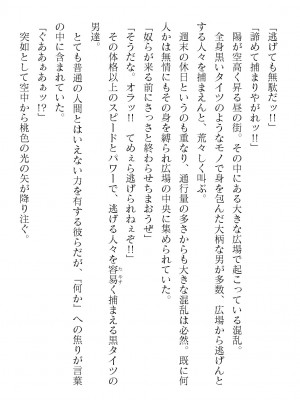 「逃げても無駄だッ!!」
「諦めて捕まりやがれッ!!」
陽が空高く昇る昼の街。その中にある大きな広場で起こっている混乱。
全身黒いタイツのようなモノで身を包んだ大柄な男が多数、広場から逃げんと
する人々を捕まえんと、荒々しく叫ぶ。
週末の休日というのも重なり、通行量の多さからも大きな混乱は必然。既に何
人かは無情にもその身を縛られ広場の中央に集められていた。
「奴らが来る前にさっさと終わらせちまおうぜ」
「そうだな。オラッ!! てめぇら逃げられねぇぞ!!」
その体格以上のスピードとパワーで、逃げる人々を容易く捕まえる黒タイツの
男達。
とても普通の人間とはいえない力を有する彼らだが、「何か」への焦りが言葉
の中に含まれていた。
「ぐああぁああぁッ!?」
突如として空中から桃色の光の矢が降り注ぐ。